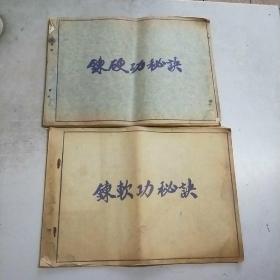 錬硬功秘訣
錬軟功秘訣